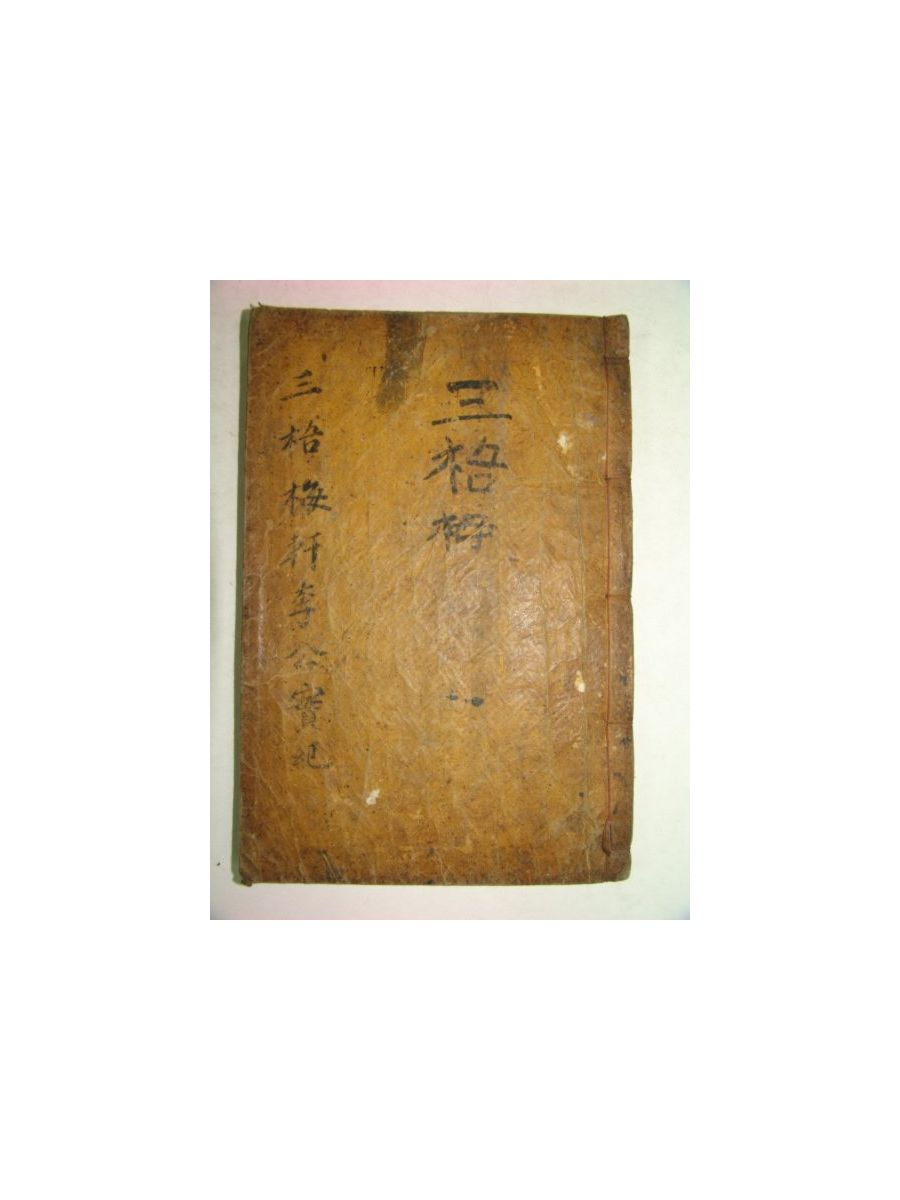 三梧
三梧梅軒李公實紀